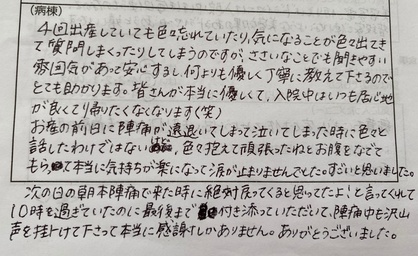 (病棟)
4回出産していても色々忘れていたり、気になることが色々出てき
て質問しまくったりしてしまうのですが、ささいなことでも聞きやすい
雰囲気があって安心するし、何よりも優しく丁寧に教えて下さるので
とても助かります。皆さんが本当に優しくて、入院中はいつも居心地
が良くて帰りたくなくなります(笑)
お産の前日に陣痛が遠退いてしまって泣いてしまった時に色々と
話したわけではない、色々抱えて頑張ったねとお腹をなでて
もらって本当に気持ちが楽になって涙が止まりませんでした。すごいと思いました。
次の日の朝本陣痛で来た時に絶対戻ってくると思ってたよ!と言ってくれて
10時を過ぎていたのに最後まで付き添っていただいて、陣痛中も沢山
声を掛けて下さって本当に感謝しかありません。ありがとうございました。